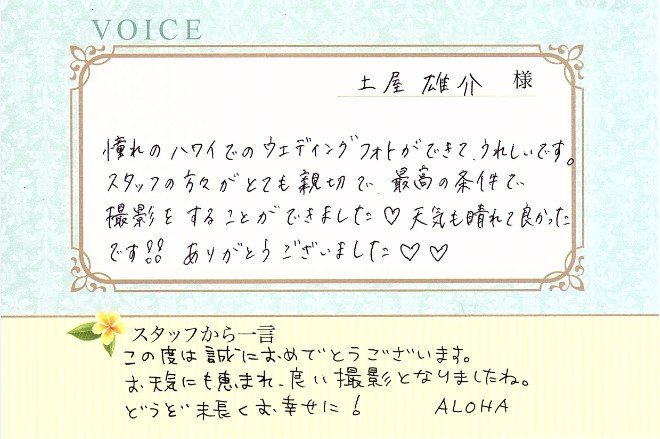 VOICE
土屋 雄介 様
憧れのハワイでのウエディングフォトができて、うれしいです。
スタッフの方々がとても親切で、最高の条件で
撮影をすることができました♡天気も晴れて良かった
です!! ありがとうございました♡♡
スタッフから一言
この度は誠におめでとうございます。
お天気にも恵まれ、良い撮影となりましたね。
どうぞ末長くお幸せに! ALOHA